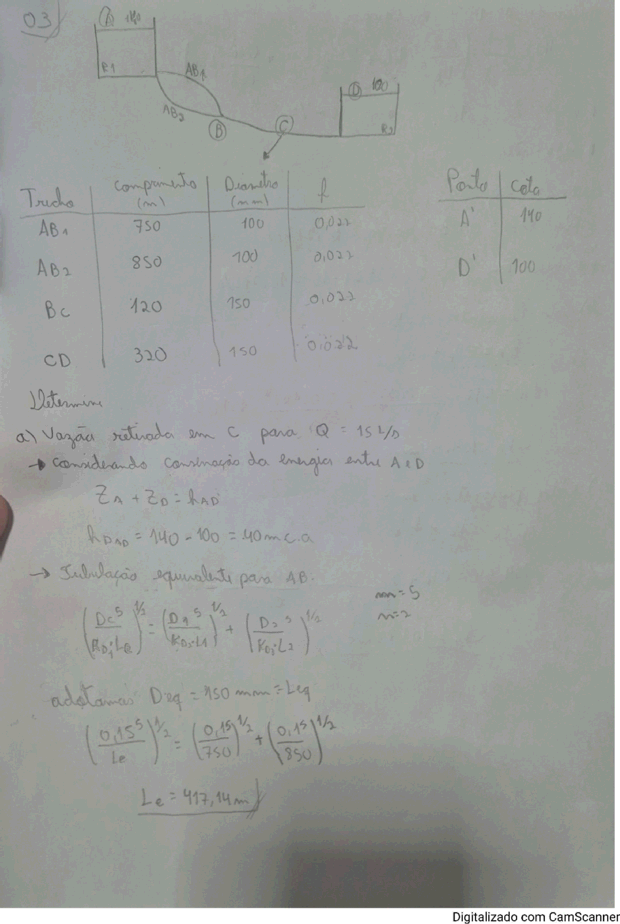 03)
A 140
R1
AB1
AB2
B
C
D 100
R2
Trecho Comprimento (m) Diametro (mm) f
AB1 750 100 0,022
AB2 850 100 0,022
BC 120 150 0,022
CD 320 150 0,022
Ponto Cota
A' 140
D' 100
Determine
a) Vazão retirada em C para Q = 15 L/s
→ considerando conservação da energia entre A e D
ZA + ZD = hAD
hDAD = 140 - 100 = 40 m.c.a
→ Tubulação equivalente para AB.
m=5
n=2
(De^5 / KDi Le)^1/2 = (D1^5 / KDi L1)^1/2 + (D2^5 / KDi L2)^1/2
adotamos Deq = 150 mm = Leq
(0,15^5 / Le)^1/2 = (0,1^5 / 750)^1/2 + (0,1^5 / 850)^1/2
Le = 417,14 m
Digitalizado com CamScanner